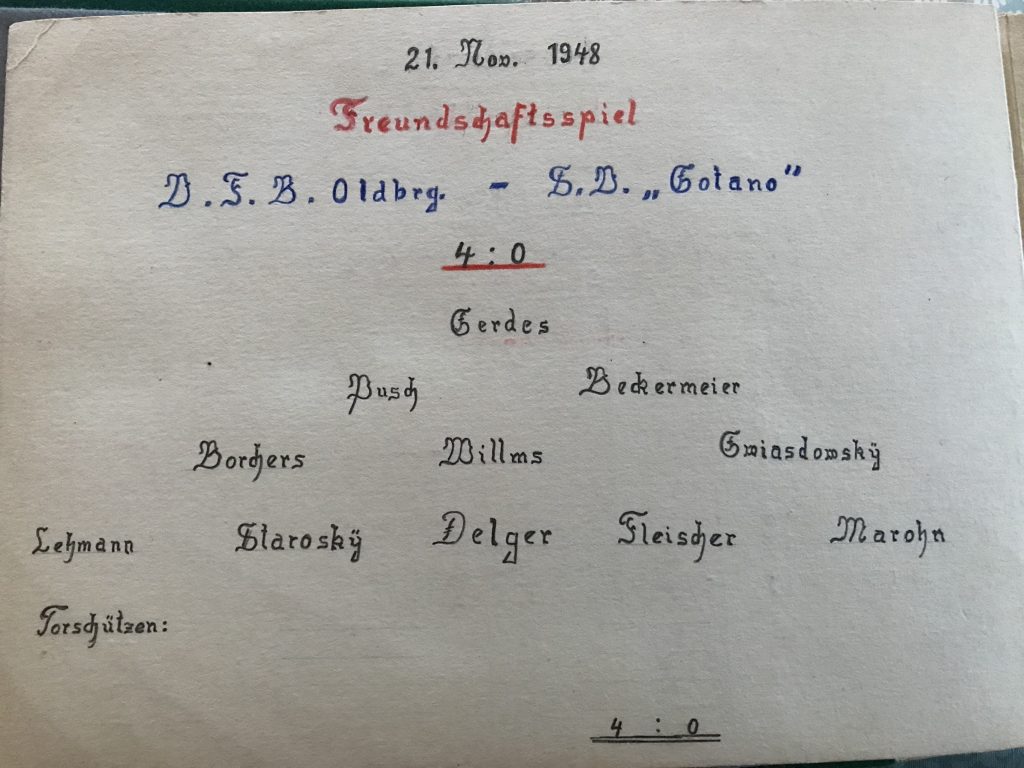 21. Nov. 1948
Freundschaftsspiel
V. F. B. Oldbrg. - S.V. „Gotano”
4 : 0
Gerdes
Pusch Beckermeier
Borchers Willms Gwiasdowskÿ
Lehmann Staroskÿ Delger Fleischer Marohn
Torschützen:
4 : 0